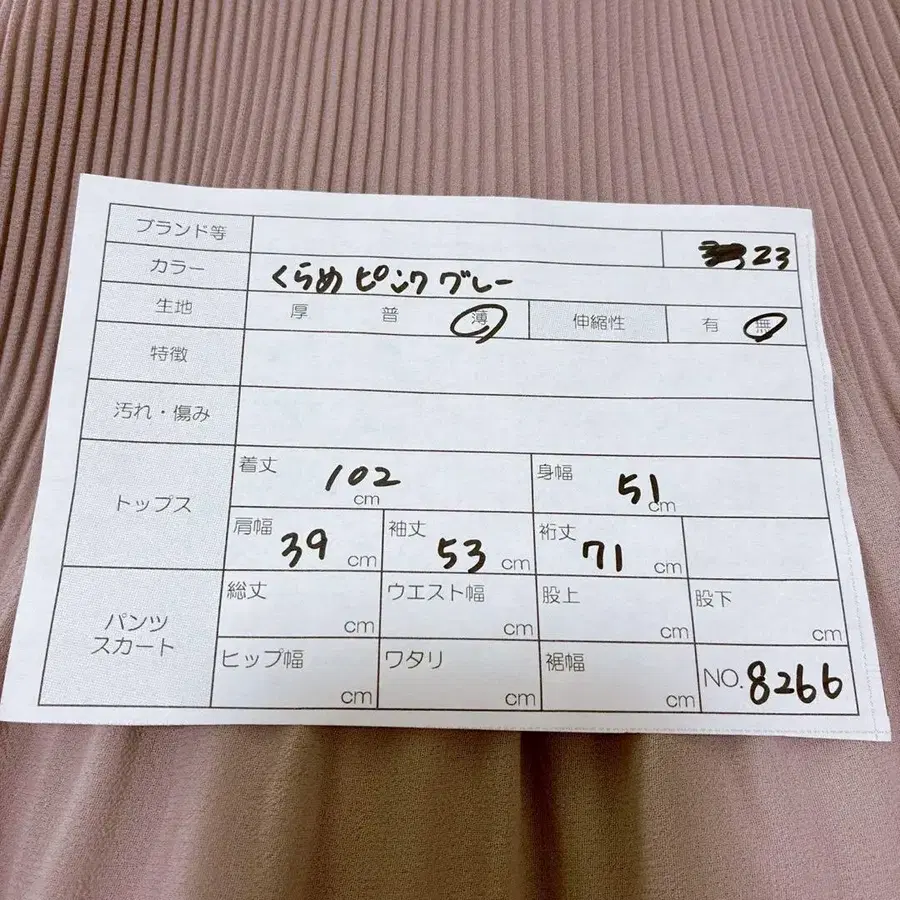 ブランド等 23
カラー くらめピンクグレー
生地 厚 普 薄 伸縮性 有 無
特徴
汚れ・傷み
トップス 着丈 102 cm 身幅 51 cm
肩幅 39 cm 袖丈 53 cm 裄丈 71 cm
パンツ スカート 総丈 cm ウエスト幅 cm 股上 cm 股下 cm
ヒップ幅 cm ワタリ cm 裾幅 cm NO. 8266